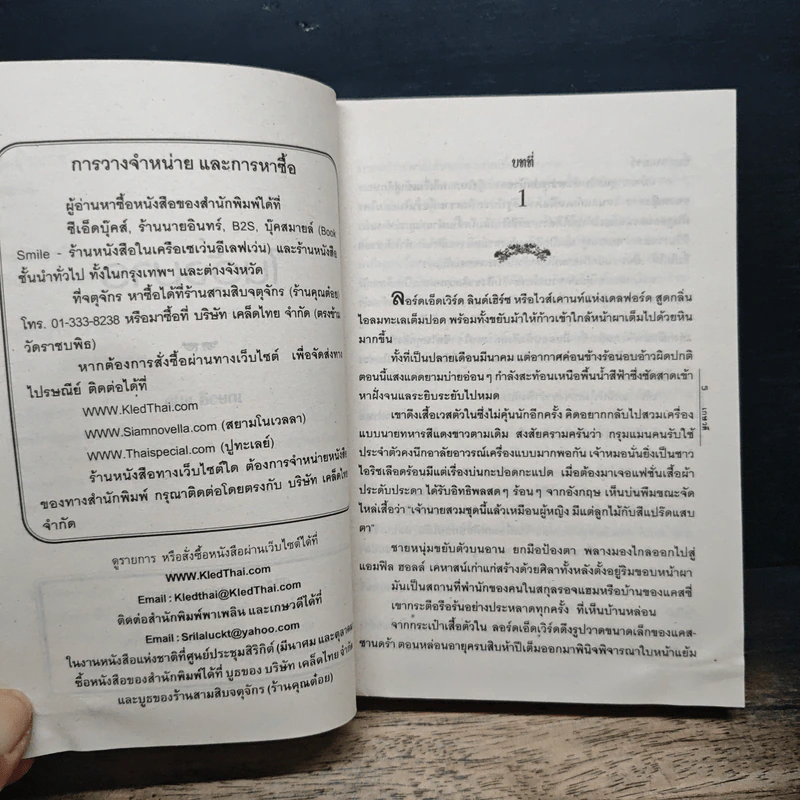 การวางจำหน่าย และการหาซื้อ
ผู้อ่านหาซื้อหนังสือของสำนักพิมพ์ได้ที่
ซีเอ็ดบุ๊คส์, ร้านนายอินทร์, B2S, บุ๊คสมายล์ (Book
Smile - ร้านหนังสือในเครือเซเว่นอีเลฟเว่น) และร้านหนังสือ
ชั้นนำทั่วไป ทั้งในกรุงเทพฯ และต่างจังหวัด
ที่จตุจักร หาซื้อได้ที่ร้านสามสิบจตุจักร (ร้านคุณต๋อย)
โทร. 01-333-8238 หรือมาซื้อที่ บริษัท เคล็ดไทย จำกัด (ตรงข้าม
วัดราชบพิธ)
หากต้องการสั่งซื้อผ่านทางเว็บไซต์ เพื่อจัดส่งทาง
ไปรษณีย์ ติดต่อได้ที่
WWW.KledThai.com
WWW.Siamnovella.com (สยามโนเวลลา)
WWW.Thaispecial.com (ปูทะเลย์)
ร้านหนังสือทางเว็บไซต์ใด ต้องการจำหน่ายหนังสือ
ของทางสำนักพิมพ์ กรุณาติดต่อโดยตรงกับ บริษัท เคล็ดไทย
จำกัด
ดูรายการ หรือสั่งซื้อหนังสือผ่านเว็บไซต์ได้ที่
WWW.KledThai.com
Email : Kledthai@KledThai.com
ติดต่อสำนักพิมพ์พาเพลิน และเกษวดีได้ที่
Email : Srilaluckt@yahoo.com
ในงานหนังสือแห่งชาติที่ศูนย์ประชุมสิริกิติ์ (มีนาคม และตุลาคม)
ซื้อหนังสือของสำนักพิมพ์ได้ที่ บูธของ บริษัท เคล็ดไทย จำกัด
และบูธของร้านสามสิบจตุจักร (ร้านคุณต๋อย)
บทที่
1
ลอร์ดเอ็ดเวิร์ด ลินด์เฮิร์ซ หรือไวส์เคานท์แห่งเดลฟอร์ด สูดกลิ่น
ไอลมทะเลเต็มปอด พร้อมทั้งขยับม้าให้ก้าวเข้าใกล้หน้าผาเต็มไปด้วยหิน
มากขึ้น
ทั้งที่เป็นปลายเดือนมีนาคม แต่อากาศค่อนข้างร้อนอบอ้าวผิดปกติ
ตอนนี้แสงแดดยามบ่ายอ่อนๆ กำลังสะท้อนเหนือพื้นน้ำสีฟ้าซึ่งซัดสาดเข้า
หาฝั่งจนแลระยิบระยับไปหมด
เขาดึงเสื้อเวสตัวในซึ่งไม่คุ้นนักอีกครั้ง คิดอยากกลับไปสวมเครื่อง
แบบนายทหารสีแดงขาวตามเดิม สงสัยครามครันว่า กรุมแมนคนรับใช้
ประจำตัวคงนึกอาลัยอาวรณ์เครื่องแบบมากพอกัน เจ้าหมอนั่นยิ่งเป็นชาว
ไอริชเลือดร้อนมีแต่เรื่องบ่นกะปอดกะแปด เมื่อต้องมาเจอแฟชั่นเสื้อผ้า
ประดับประดา ได้รับอิทธิพลสดๆ ร้อนๆ จากอังกฤษ เห็นบ่นพึมขณะจัด
ไหล่เสื้อว่า "เจ้านายสวมชุดนี้แล้วเหมือนผู้หญิง มีแต่ลูกไม้กับสีแปร๊ดแสบ
ตา"
ชายหนุ่มขยับตัวบนอาน ยกมือป้องตา พลางมองไกลออกไปสู่
แอมฟิล ฮอลล์ เคหาสน์เก่าแก่สร้างด้วยศิลาทั้งหลังตั้งอยู่ริมขอบหน้าผา
มันเป็นสถานที่พำนักของคนในสกุลรอจแฮมหรือบ้านของแคสซี่
เขากระตือรือร้นอย่างประหลาดทุกครั้ง ที่เห็นบ้านหล่อน
จากกระเป๋าเสื้อตัวใน ลอร์ดเอ็ดเวิร์ดดึงรูปวาดขนาดเล็กของแคส-
ซานดร้า ตอนหล่อนอายุครบสิบห้าปีเต็มออกมาพินิจพิจารณาใบหน้าแย้ม
5
เกษวดี